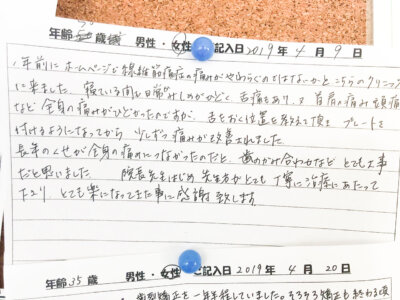 年齢 50 歳 男性・女性 ご記入日 2019 年 4 月 9 日
1年前にホームページで線維筋痛症の痛みがやわらぐのではないかとこちらのクリニック
に来ました。寝ている間も日常がみしめがひどく、舌痛もあり、又首肩の痛み頭痛
など全身の痛みがひどかったのですが、舌をおく位置を教えて頂き プレートを
付けるようになってから 少しずつ痛みが改善されました。
長年のくせが全身の痛みにつながったのだと、歯のかみ合わせなど とても大事
だと思いました 院長先生はじめ 先生方がとても丁寧に治療にあたって
下さり、とても楽になってきた事に感謝致します。
年齢 35 歳 男性・女性 ご記入日 2019 年 4 月 20 日
歯列矯正を一年半程していました。そろそろ矯正も終わる頃